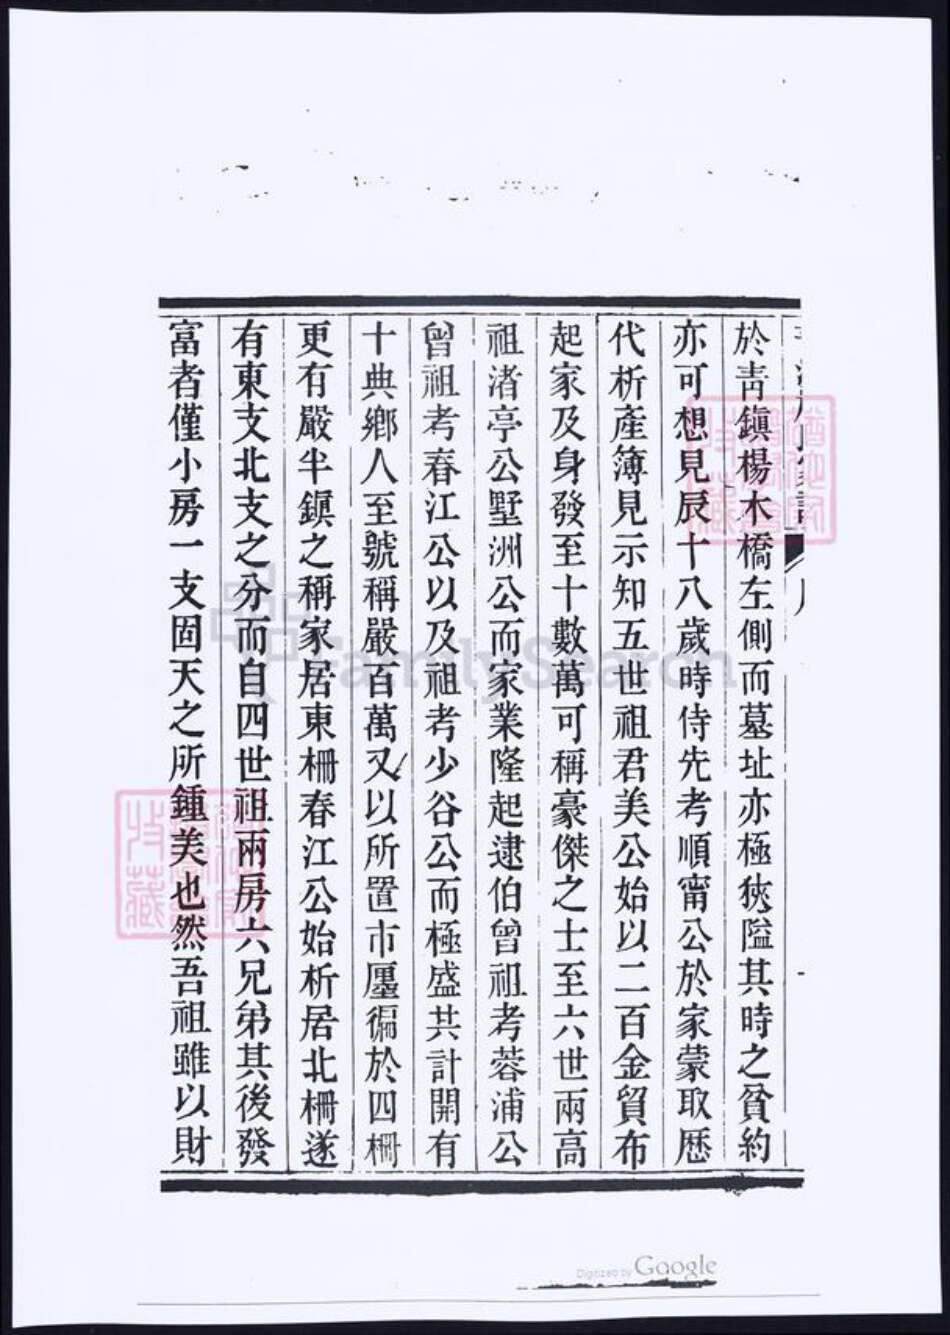 於靑鎭楊木橋左側而墓址亦極狹隘其時之貧約
亦可想見辰十八歲時侍先考順甯公於家蒙取歷
代析產簿見示知五世祖君美公始以二百金貿布
起家及身發至十數萬可稱豪傑之士至六世兩高
祖渚亭公墅洲公而家業隆起逮伯曾祖考蓉浦公
曾祖考春江公以及祖考少谷公而極盛共計開有
十典鄉人至號稱嚴百萬又以所置市廛徧於四柵
更有嚴半鎭之稱家居東柵春江公始析居北柵遂
有東支北支之分而自四世祖兩房六兄弟其後發
富者僅小房一支固天之所鍾美也然吾祖雖以財
FamilySearch
Digitized by Google